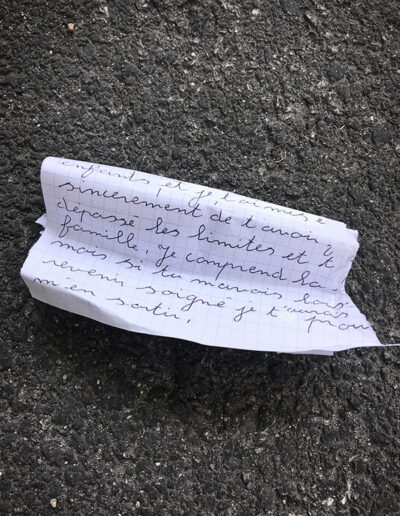 enfants, et je t'aimais, e
sincerement de t'avoir
dépassé les limites et t
famille. Je comprend ta
mais si tu m'avais
revenir soigné je t'aurais prou
m'en sortir.